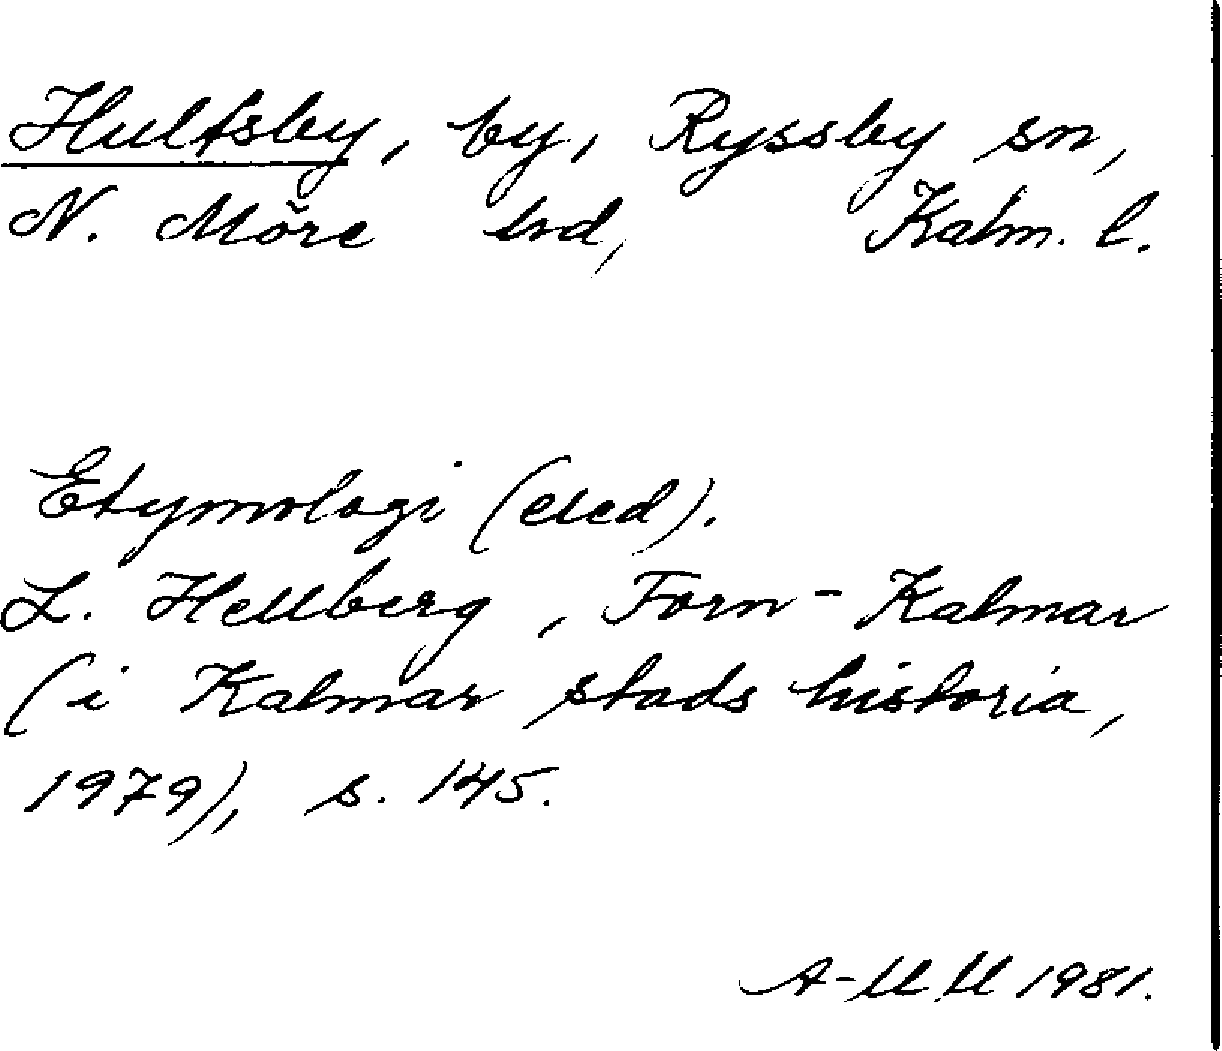 Hultsby, by, Ryssby sn,
N. Möre hd, Kalm. l.
Etymologi (eled).
L. Hellberg, Forn-Kalmar
(i Kalmar stads historia,
1979), s. 145.
A-MM 1981.